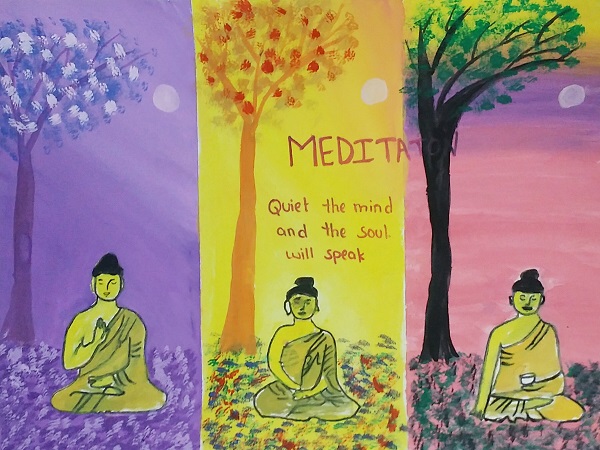 MEDITATON
Quiet the mind
and the soul
will speak